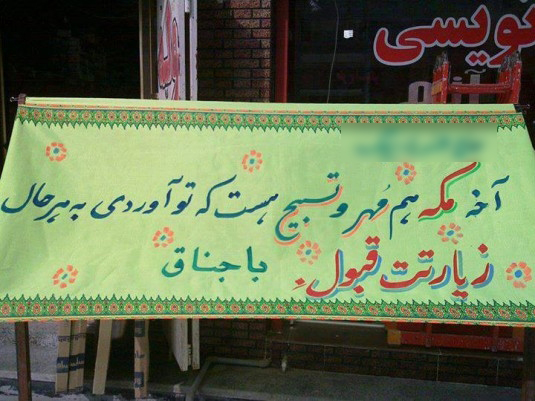 نویسی
آخه مکه هم مُهر و تسبیح هست که تو آوردی به هر حال
زیارتت قبول.
باجناق